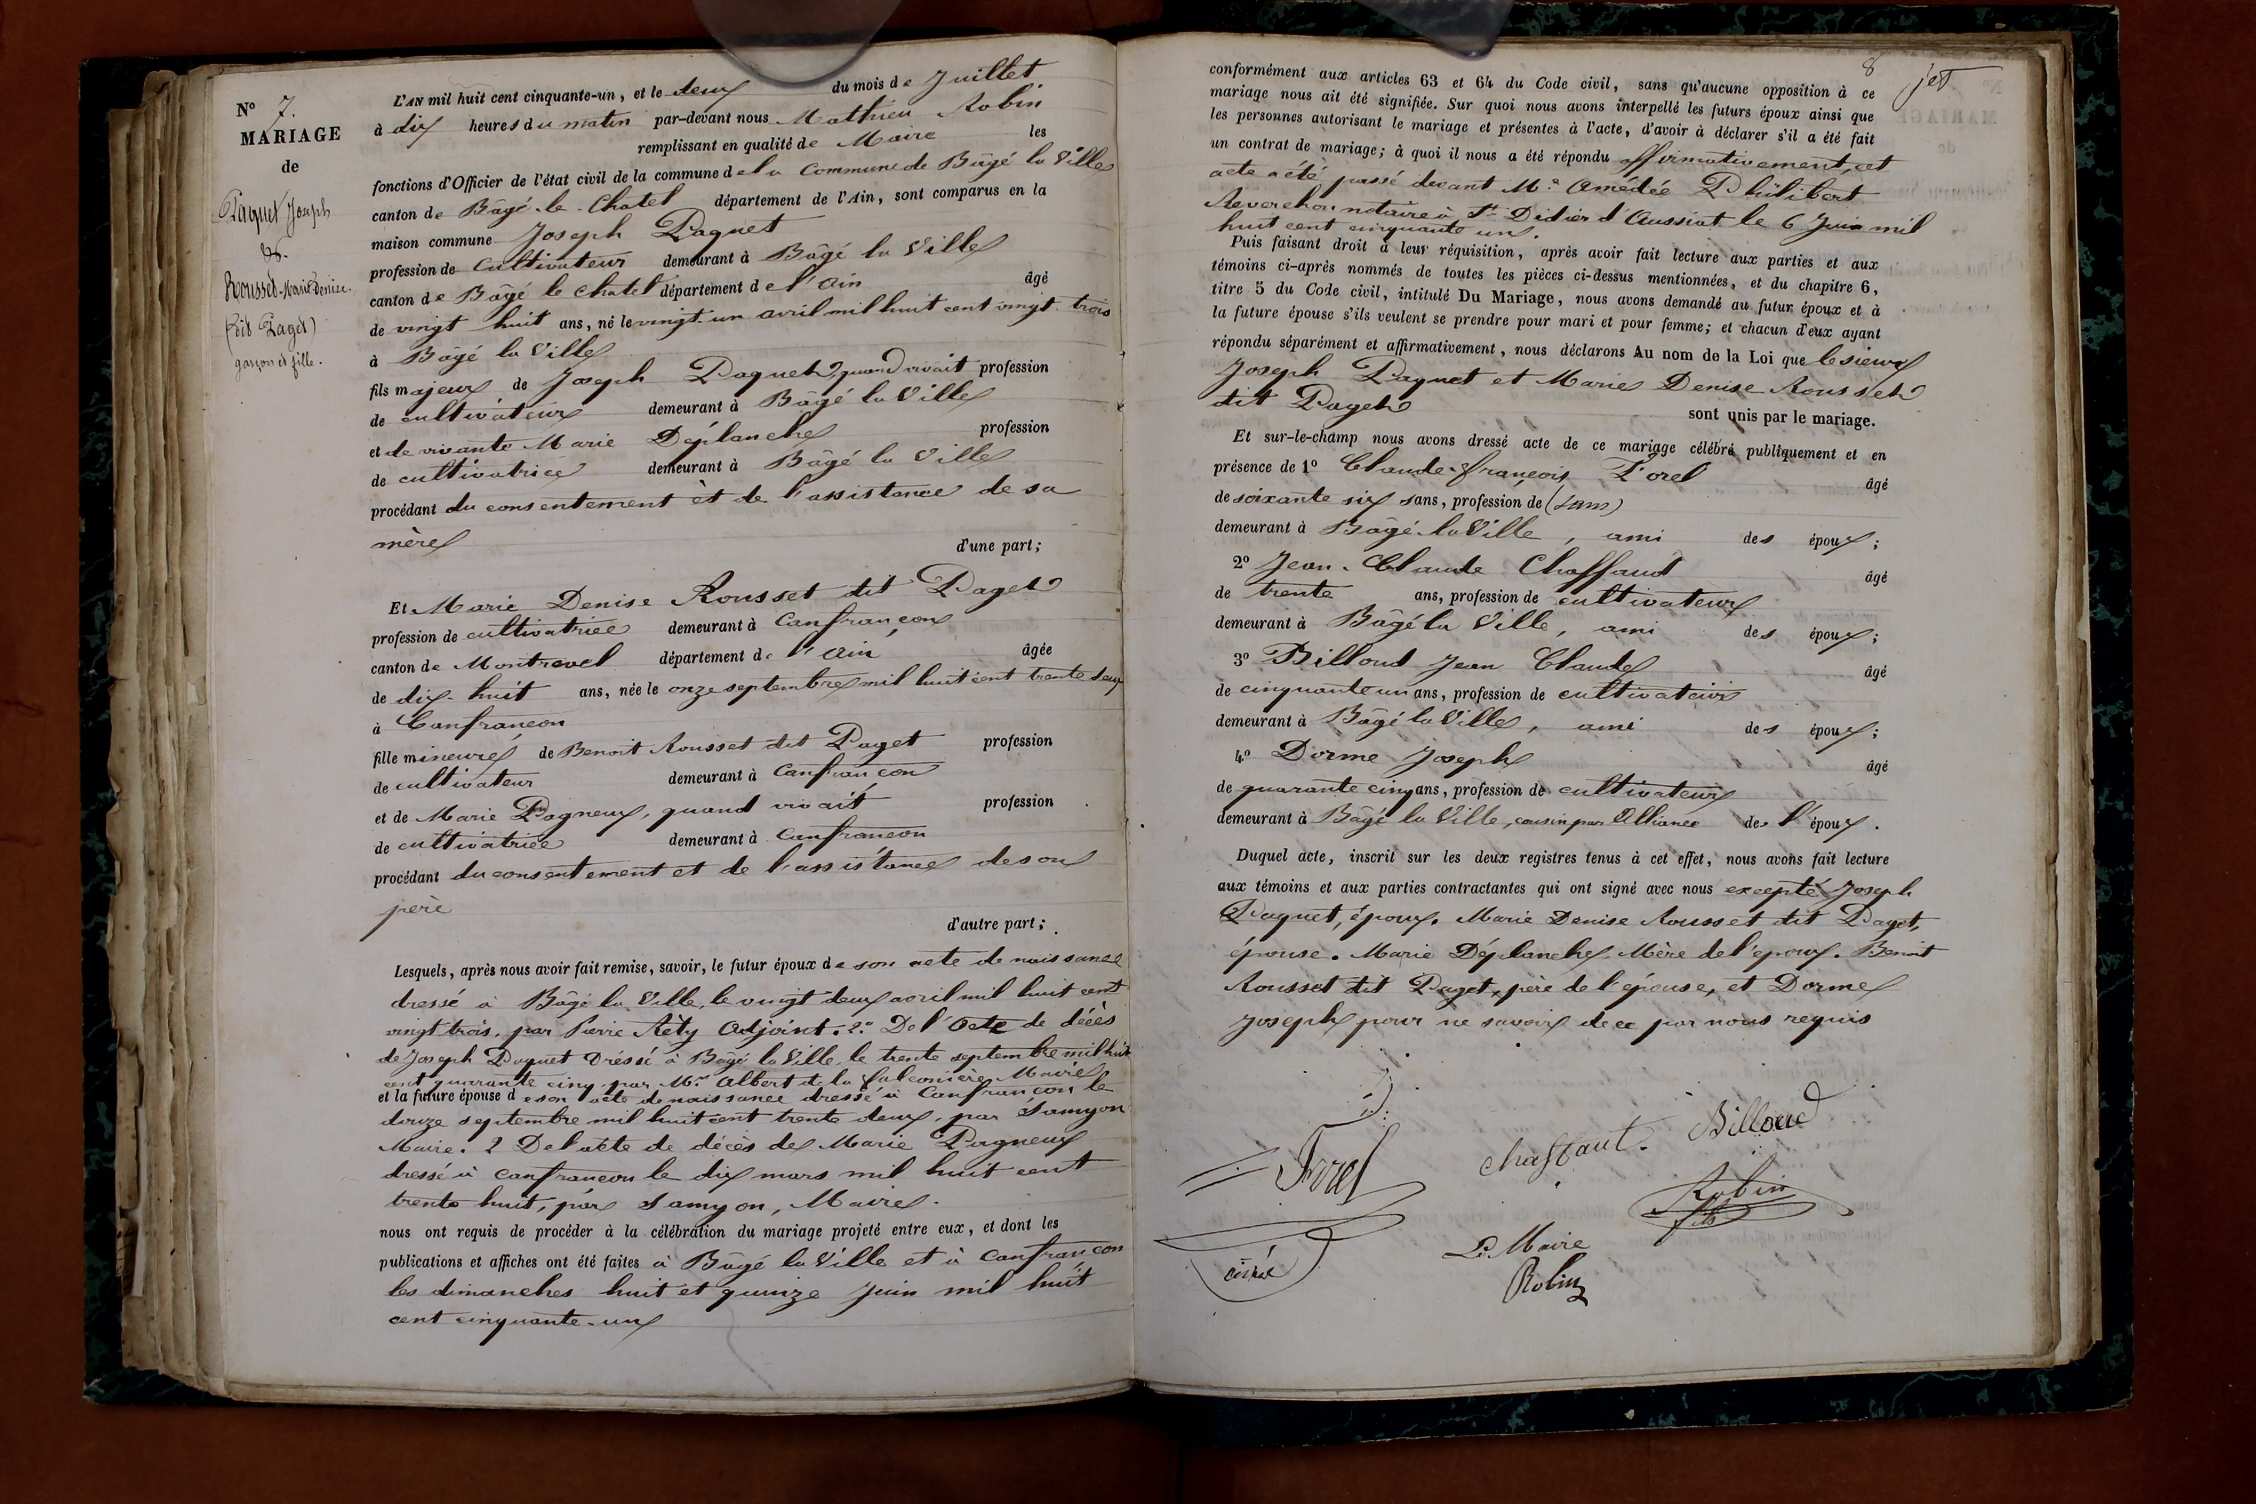 N° 7.
MARIAGE
de
Paquet Joseph
&
Rousset Marie Denise
(dit Paget)
garçon et fille.
L'AN mil huit cent cinquante-un, et le deux du mois de Juillet
à dix heures du matin par-devant nous Mathieu Robin
remplissant en qualité de Maire les
fonctions d'Officier de l'état civil de la commune de la Commune de Bâgé la Ville
canton de Bâgé-le-Chatel département de l'Ain, sont comparus en la
maison commune Joseph Paquet
profession de Cultivateur demeurant à Bâgé la Ville
canton de Bâgé le Chatel département de l'Ain âgé
de vingt huit ans, né le vingt-un avril mil huit cent vingt-trois
à Bâgé la Ville
fils majeur de Joseph Paquet, quand vivait profession
de cultivateur demeurant à Bâgé la Ville
et de vivante Marie Déplanche profession
de cultivatrice demeurant à Bâgé la Ville
procédant du consentement et de l'assistance de sa
mère d'une part;
Et Marie Denise Rousset dit Paget
profession de cultivatrice demeurant à Confrançon
canton de Montrevel département de l'Ain âgée
de dix-huit ans, née le onze septembre mil huit cent trente deux
à Confrançon
fille mineure de Benoit Rousset dit Paget profession
de cultivateur demeurant à Confrançon
et de Marie Pagneux, quand vivait profession
de cultivatrice demeurant à Confrançon
procédant du consentement et de l'assistance de son
père d'autre part;
Lesquels, après nous avoir fait remise, savoir, le futur époux de son acte de naissance
dressé à Bâgé la Ville, le vingt deux avril mil huit cent
vingt trois, par Pierre Réty Adjoint. 2° De l'Acte de décès
de Joseph Paquet Dréssé à Bâgé la Ville le trente septembre mil huit
cent quarante cinq, par Mr Albert de la Falconière, Maire
et la future épouse de son acte de naissance dressé à Confrançon le
douze septembre mil huit cent trente deux, par Samyon
Maire. 2 De l'acte de décès de Marie Pagneux
dressé à Confrançon le dix mars mil huit cent
trente huit, par Samyon, Maire.
nous ont requis de procéder à la célébration du mariage projeté entre eux, et dont les
publications et affiches ont été faites à Bâgé la Ville et à Confrançon
les dimanches huit et quinze Juin mil huit
cent cinquante-un
8
conformément aux articles 63 et 64 du Code civil, sans qu'aucune opposition à ce
mariage nous ait été signifiée. Sur quoi nous avons interpellé les futurs époux ainsi que
les personnes autorisant le mariage et présentes à l'acte, d'avoir à déclarer s'il a été fait
un contrat de mariage; à quoi il nous a été répondu affirmativement, cet
acte a été passé devant Me Amédée Philibert
Reverchon notaire à St Didier d'Aussiat le 6 Juin mil
huit cent cinquante un.
Puis faisant droit à leur réquisition, après avoir fait lecture aux parties et aux
témoins ci-après nommés de toutes les pièces ci-dessus mentionnées, et du chapitre 6,
titre 5 du Code civil, intitulé Du Mariage, nous avons demandé au futur époux et à
la future épouse s'ils veulent se prendre pour mari et pour femme; et chacun d'eux ayant
répondu séparément et affirmativement, nous déclarons Au nom de la Loi que le sieur
Joseph Paquet et Marie Denise Rousset
dit Paget sont unis par le mariage.
Et sur-le-champ nous avons dressé acte de ce mariage célébré publiquement et en
présence de 1° Claude-françois Forel âgé
de soixante six ans, profession de (sans)
demeurant à Bâgé-la Ville, ami des époux;
2° Jean-Claude Chaffaud âgé
de trente ans, profession de cultivateur
demeurant à Bâgé la Ville, ami des époux;
3° Billoud Jean Claude âgé
de cinquante un ans, profession de cultivateur
demeurant à Bâgé la Ville, ami des époux;
4° Dorme Joseph âgé
de quarante cinq ans, profession de cultivateur
demeurant à Bâgé la Ville, cousin par Alliance de l'époux.
Duquel acte, inscrit sur les deux registres tenus à cet effet, nous avons fait lecture
aux témoins et aux parties contractantes qui ont signé avec nous excepté Joseph
Paquet, époux. Marie Denise Rousset dit Paget,
épouse. Marie Déplanche Mère de l'époux. Benoit
Rousset dit Paget, père de l'épouse, et Dorme
Joseph pour ne savoir de ce par nous requis
Forel
chaffaut.
Billoud
Robin
fils
Le Maire
Robin